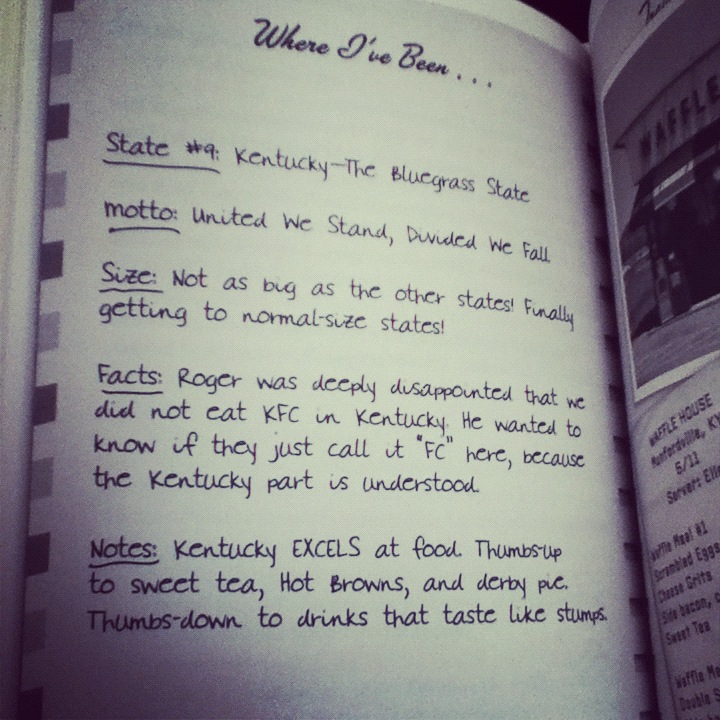 Where I've Been...
State #9: Kentucky—The Bluegrass State
motto: United We Stand, Divided We Fall
Size: Not as big as the other states! Finally
getting to normal-size states!
Facts: Roger was deeply disappointed that we
did not eat KFC in Kentucky. He wanted to
know if they just call it "FC" here, because
the Kentucky part is understood.
Notes: Kentucky EXCELS at food. Thumbs-up
to sweet tea, Hot Browns, and derby pie.
Thumbs-down to drinks that taste like stumps.
WAFFLE
WAFFLE HOUSE
Munfordville, KY
5/11
Server:
Waffle Meal #1
Scrambled Eggs
Cheese Grits
Side bacon,
Sweet Tea
Waffle
Double